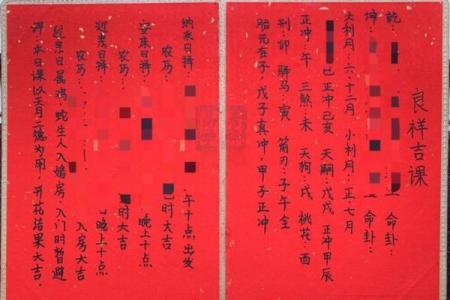 良祥吉课
乾： 命卦：
坤： 命卦：
大利月：六·十二月 小利月：正·七月
巳正冲己亥 天嗣：戊戌 正冲甲辰
正冲：午 三煞：未 天狗：戌 桃花：酉
刑：卯 驿马：寅 箭刃：子午全
胎元在子：戊子真冲，甲子正冲
纳采日择：
农历： 午十点出发
安床日择： 时大吉
农历： 晚上十点
日择： 时大吉
农历： 晚上十点
入房大吉
亲日属鸡、蛇生人入婚房、入门时暂避
日课以天月二德为用，开花结果大吉.